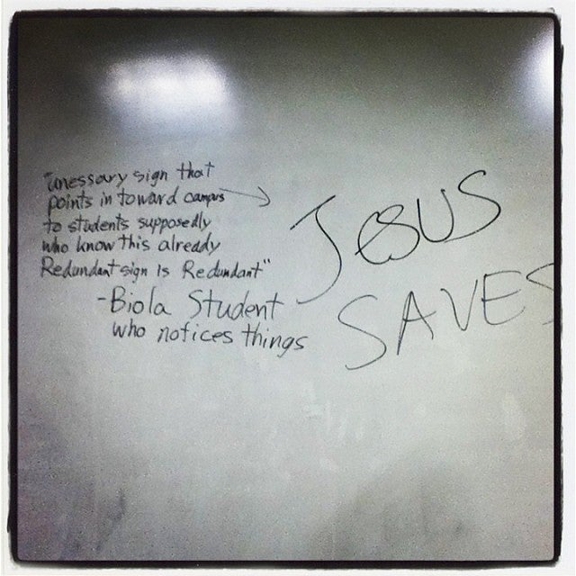 "unessary sign that
points in toward campus
to students supposedly
who know this already.
Redundant sign is Redundant"
-Biola Student
who notices things
JESUS
SAVES